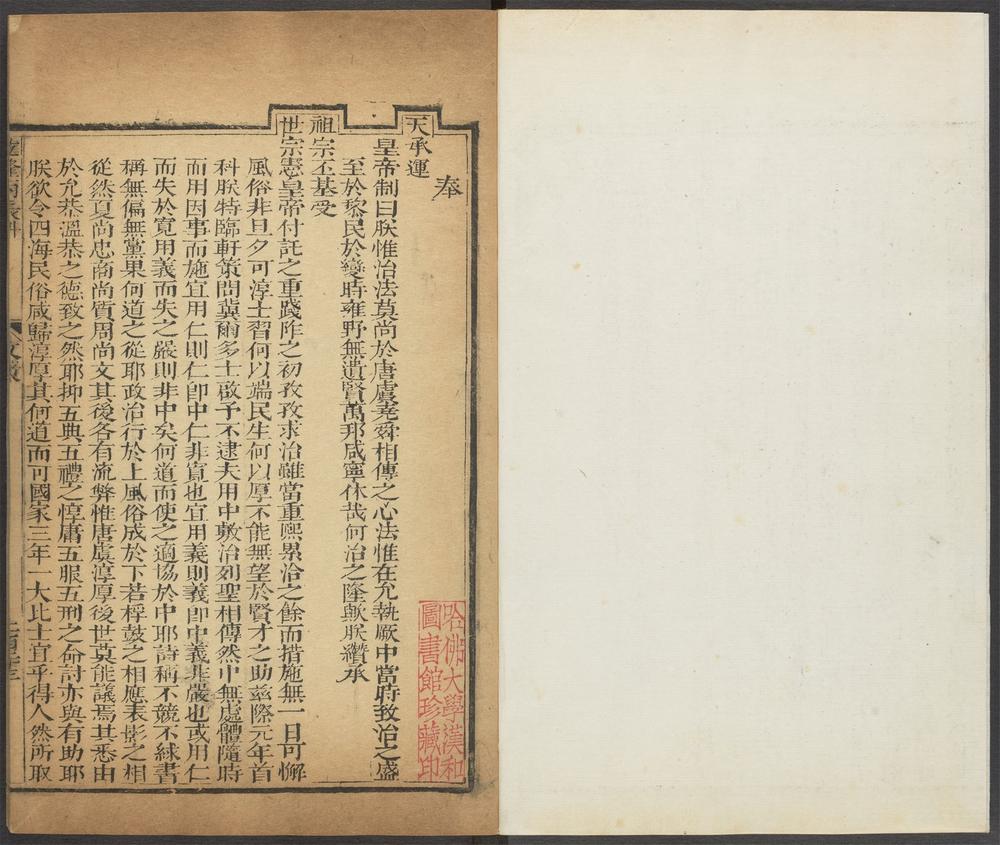 奉
天承運
皇帝制曰朕惟治法莫尚於唐虞堯舜相傳之心法惟在允執厥中當時致治之盛
至於黎民於變時雍野無遺賢萬邦咸寧休哉何治之隆歟朕纘承
祖宗丕基受
世宗憲皇帝付託之重踐阼之初孜孜求治雖當重熙累洽之餘而措施無一日可懈
風俗非旦夕可淳士習何以端民生何以厚不能無望於賢才之助茲際元年首
科朕特臨軒策問冀爾多士啟予不逮夫用中敷治列聖相傳然中無處體隨時
而用因事而施宜用仁則仁即中仁非寬也宜用義則義即中義非嚴也或用仁
而失於寬用義而失之嚴則非中矣何道而使之適協於中耶詩稱不競不絿書
稱無偏無黨果何道之從耶政治行於上風俗成於下若桴鼓之相應表影之相
從然夏尚忠商尚質周尚文其後各有流弊惟唐虞淳厚後世莫能議焉其悉由
於允恭溫恭之德致之然耶抑五典五禮之惇庸五服五刑之命討亦與有助耶
朕欲令四海民俗咸歸淳厚其何道而可國家三年一大比士宜乎得人然所取
哈佛大學漢和
圖書館珍藏印